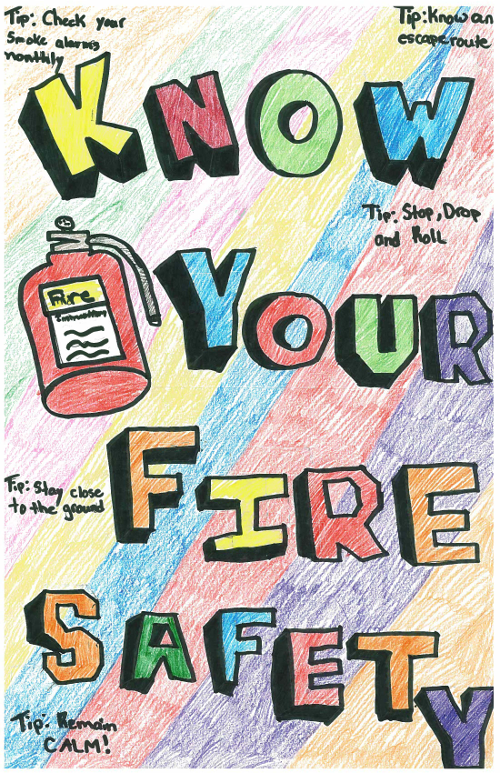 Tip: Check your
smoke alarms
monthly
Tip: Know an
escape route
KNOW
Tip: Stop, Drop
and Roll
Fire
YOUR
FIRE
Tip: Stay close
to the ground
SAFETY
Tip: Remain
CALM!